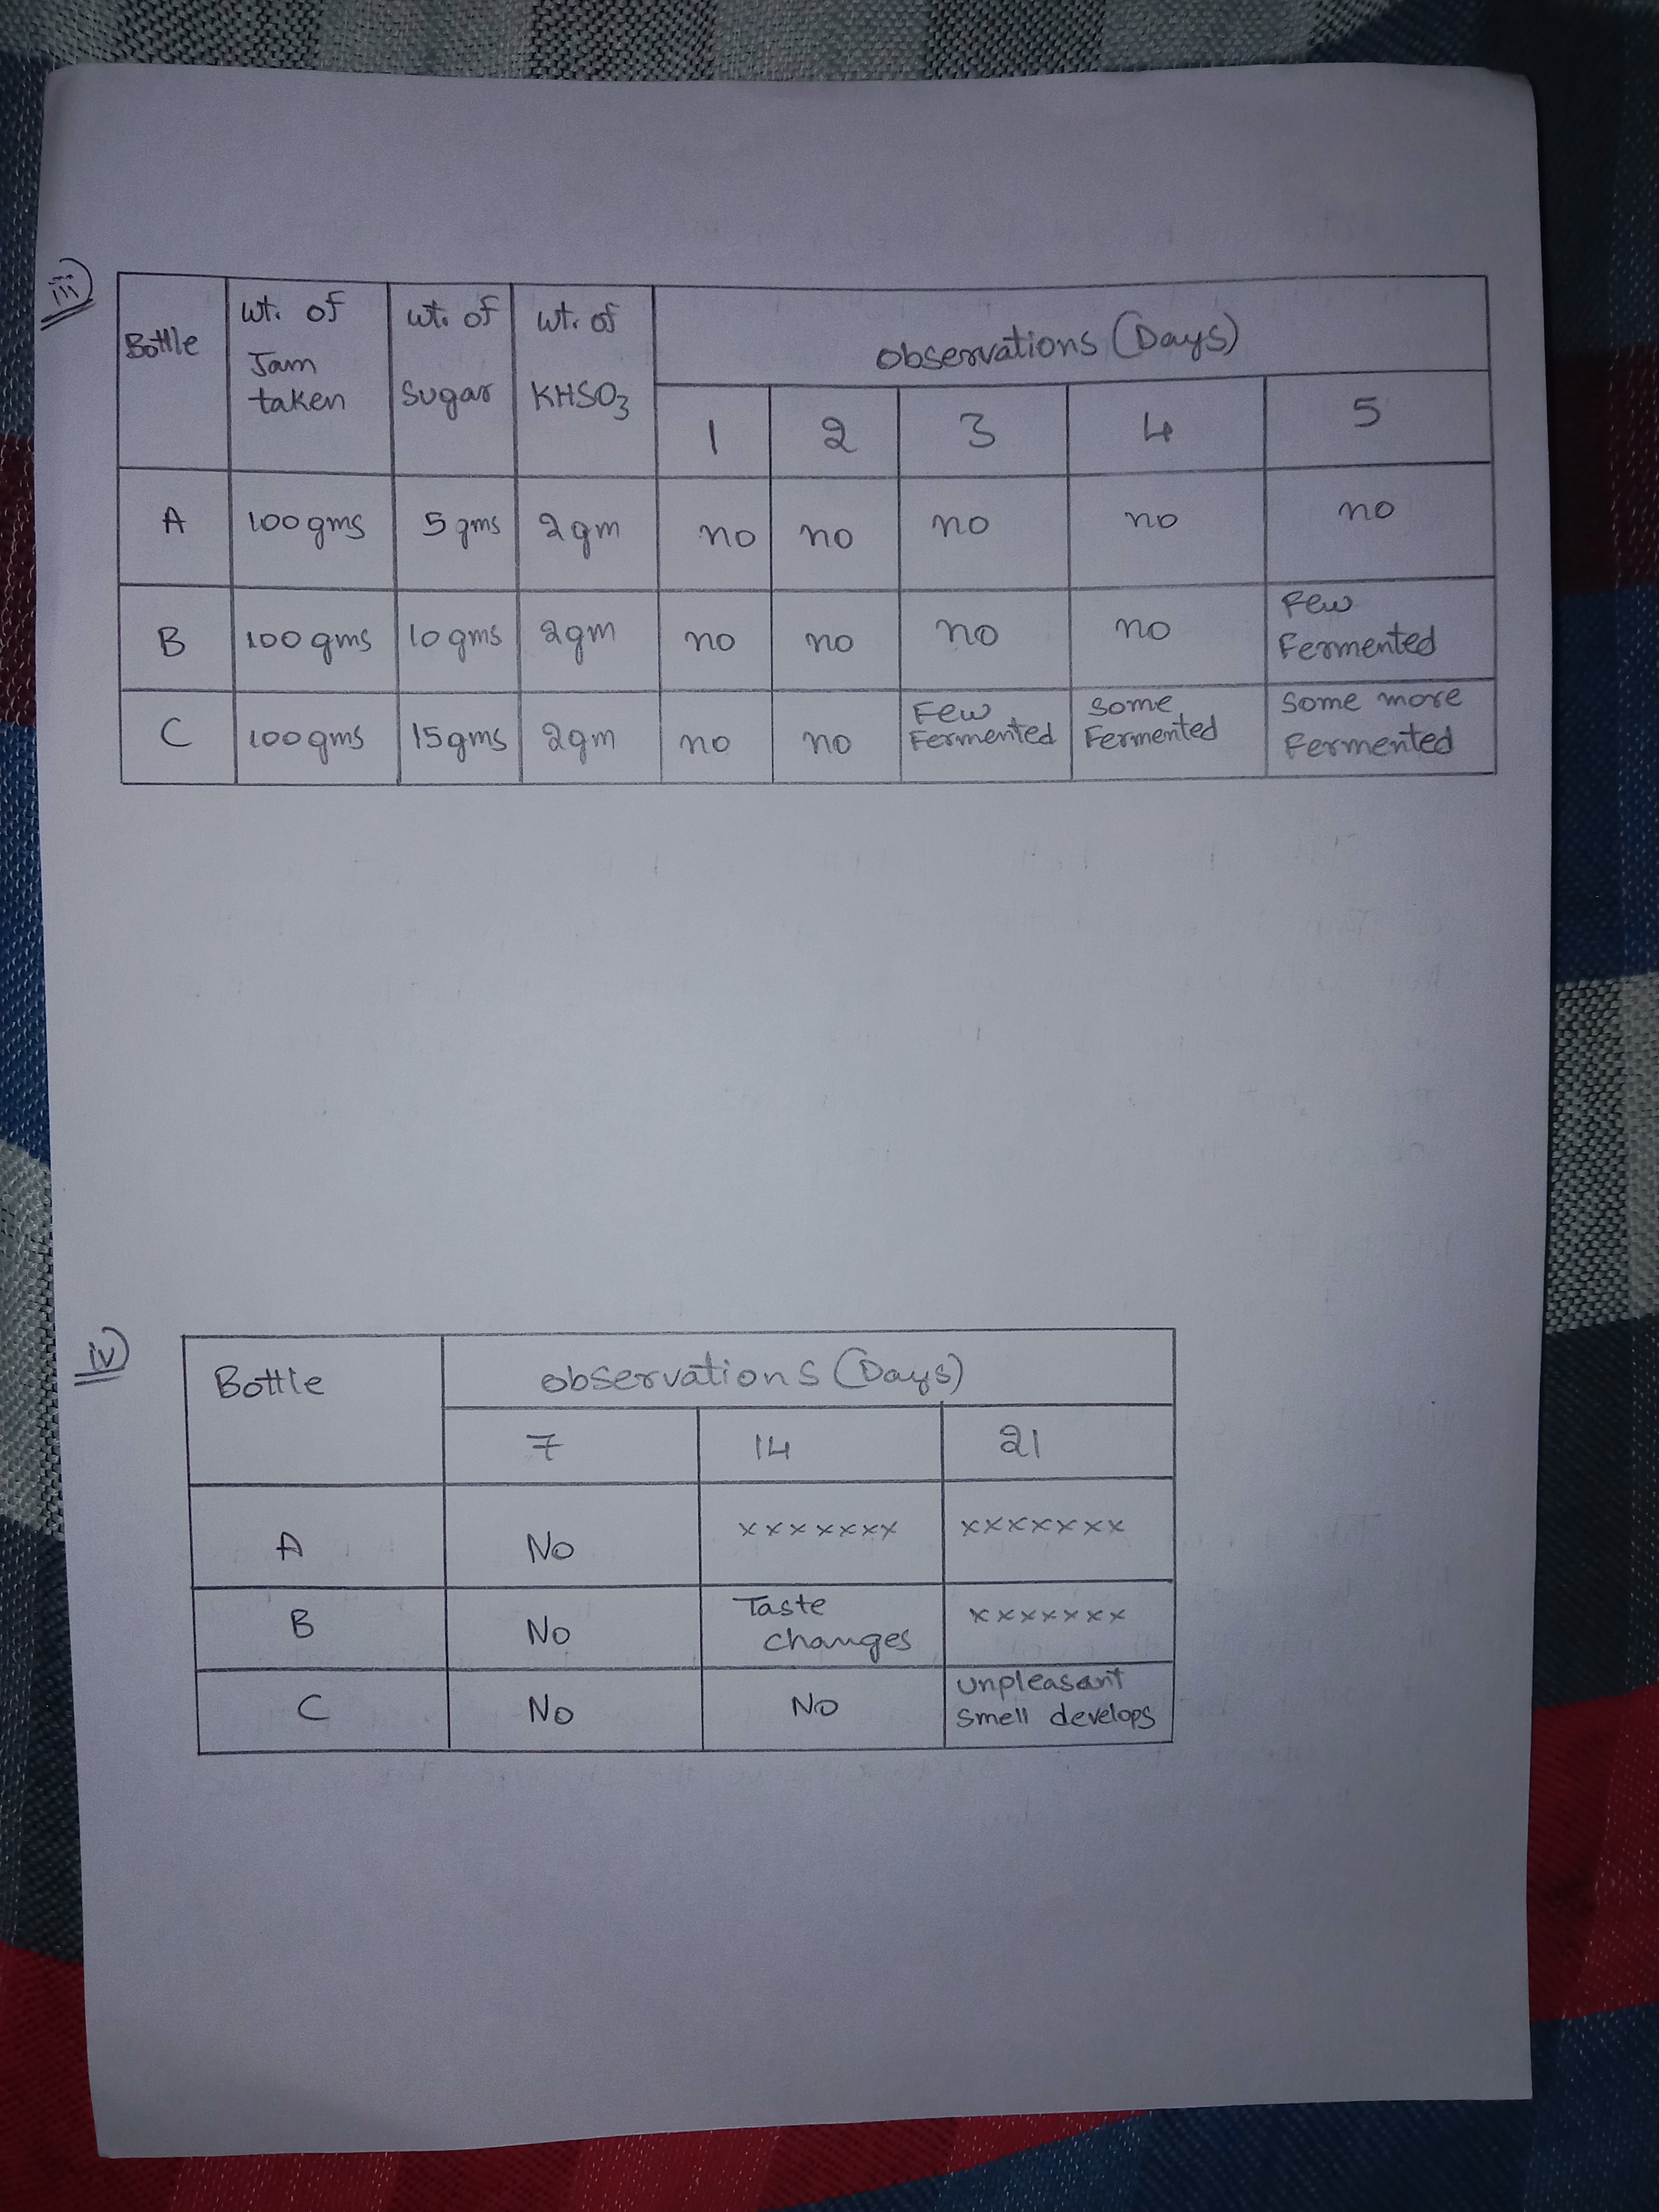 iii)
Bottle | wt. of Jam taken | wt. of Sugar | wt. of KHSO3 | observations (Days)
1 | 2 | 3 | 4 | 5
A | 100gms | 5gms | 2gm | no | no | no | no | no
B | 100gms | 10gms | 2gm | no | no | no | no | Few Fermented
C | 100gms | 15gms | 2gm | no | no | Few Fermented | Some Fermented | Some more Fermented
iv)
Bottle | observations (Days)
7 | 14 | 21
A | No | xxxxxxx | xxxxxxx
B | No | Taste changes | xxxxxxx
C | No | No | unpleasant smell develops